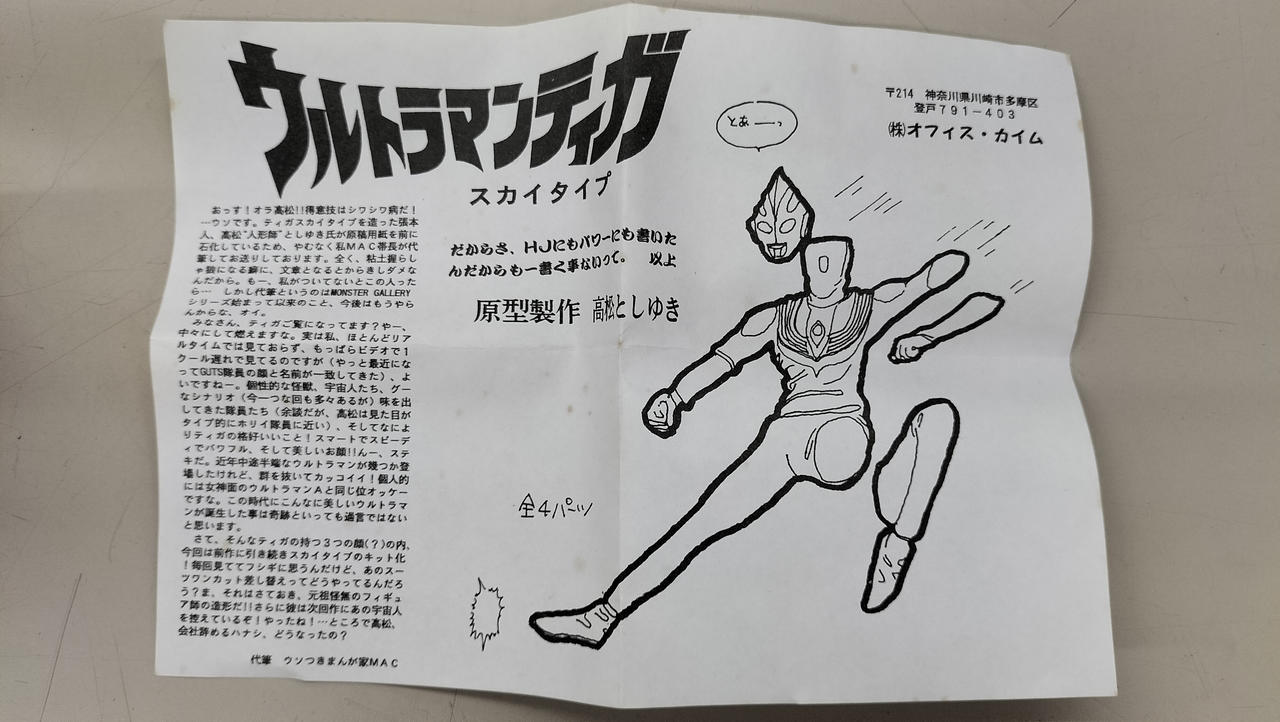 ウルトラマンティガ
スカイタイプ
だからさ、HJにもパワーにも書いた
んだからもー書く事ないって。 以上
原型製作 高松としゆき
とあーっ
〒214 神奈川県川崎市多摩区
登戸791-403
㈱オフィス・カイム
おっす!オラ高松!!得意技はシワシワ病だ!
…ウソです。ティガスカイタイプを造った張本
人、高松“人形師”としゆき氏が原稿用紙を前に
石化しているため、やむなく私MAC帯長が代
筆してお送りしております。全く、粘土握らし
ゃ狼になる癖に、文章となるとからきしダメな
んだから。もー、私がついてないとこの人った
ら… しかし代筆というのはMONSTER GALLERY
シリーズ始まって以来のこと、今後はもうやら
んからな、オイ。
みなさん、ティガご覧になってます?やー、
中々にして燃えますな。実は私、ほとんどリア
ルタイムでは見ておらず、もっぱらビデオで1
クール遅れで見てるのですが(やっと最近にな
ってGUTS隊員の顔と名前が一致してきた)、よ
いですねー。個性的な怪獣、宇宙人たち、グー
なシナリオ(今一つな回も多々あるが)味を出
してきた隊員たち(余談だが、高松は見た目が
タイプ的にホリイ隊員に近い)、そしてなによ
りティガの格好いいこと!スマートでスピーデ
ィでパワフル、そして美しいお顔!!んー、ステ
キだ。近年中途半端なウルトラマンが幾つか登
場したけれど、群を抜いてカッコイイ!個人的
には女神面のウルトラマンAと同じ位オッケー
ですな。この時代にこんなに美しいウルトラマ
ンが誕生した事は奇跡といっても過言ではない
と思います。
さて、そんなティガの持つ3つの顔(?)の内、
今回は前作に引き続きスカイタイプのキット化
!毎回見ててフシギに思うんだけど、あのスー
ツワンカット差し替えってどうやってるんだろ
う?ま、それはさておき、元祖怪無のフィギュ
ア師の造形だ!!さらに彼は次回作にあの宇宙人
を控えているぞ!やったね!…ところで高松、
会社辞めるハナシ、どうなったの?
代筆 ウソつきまんが家MAC
全4パーツ